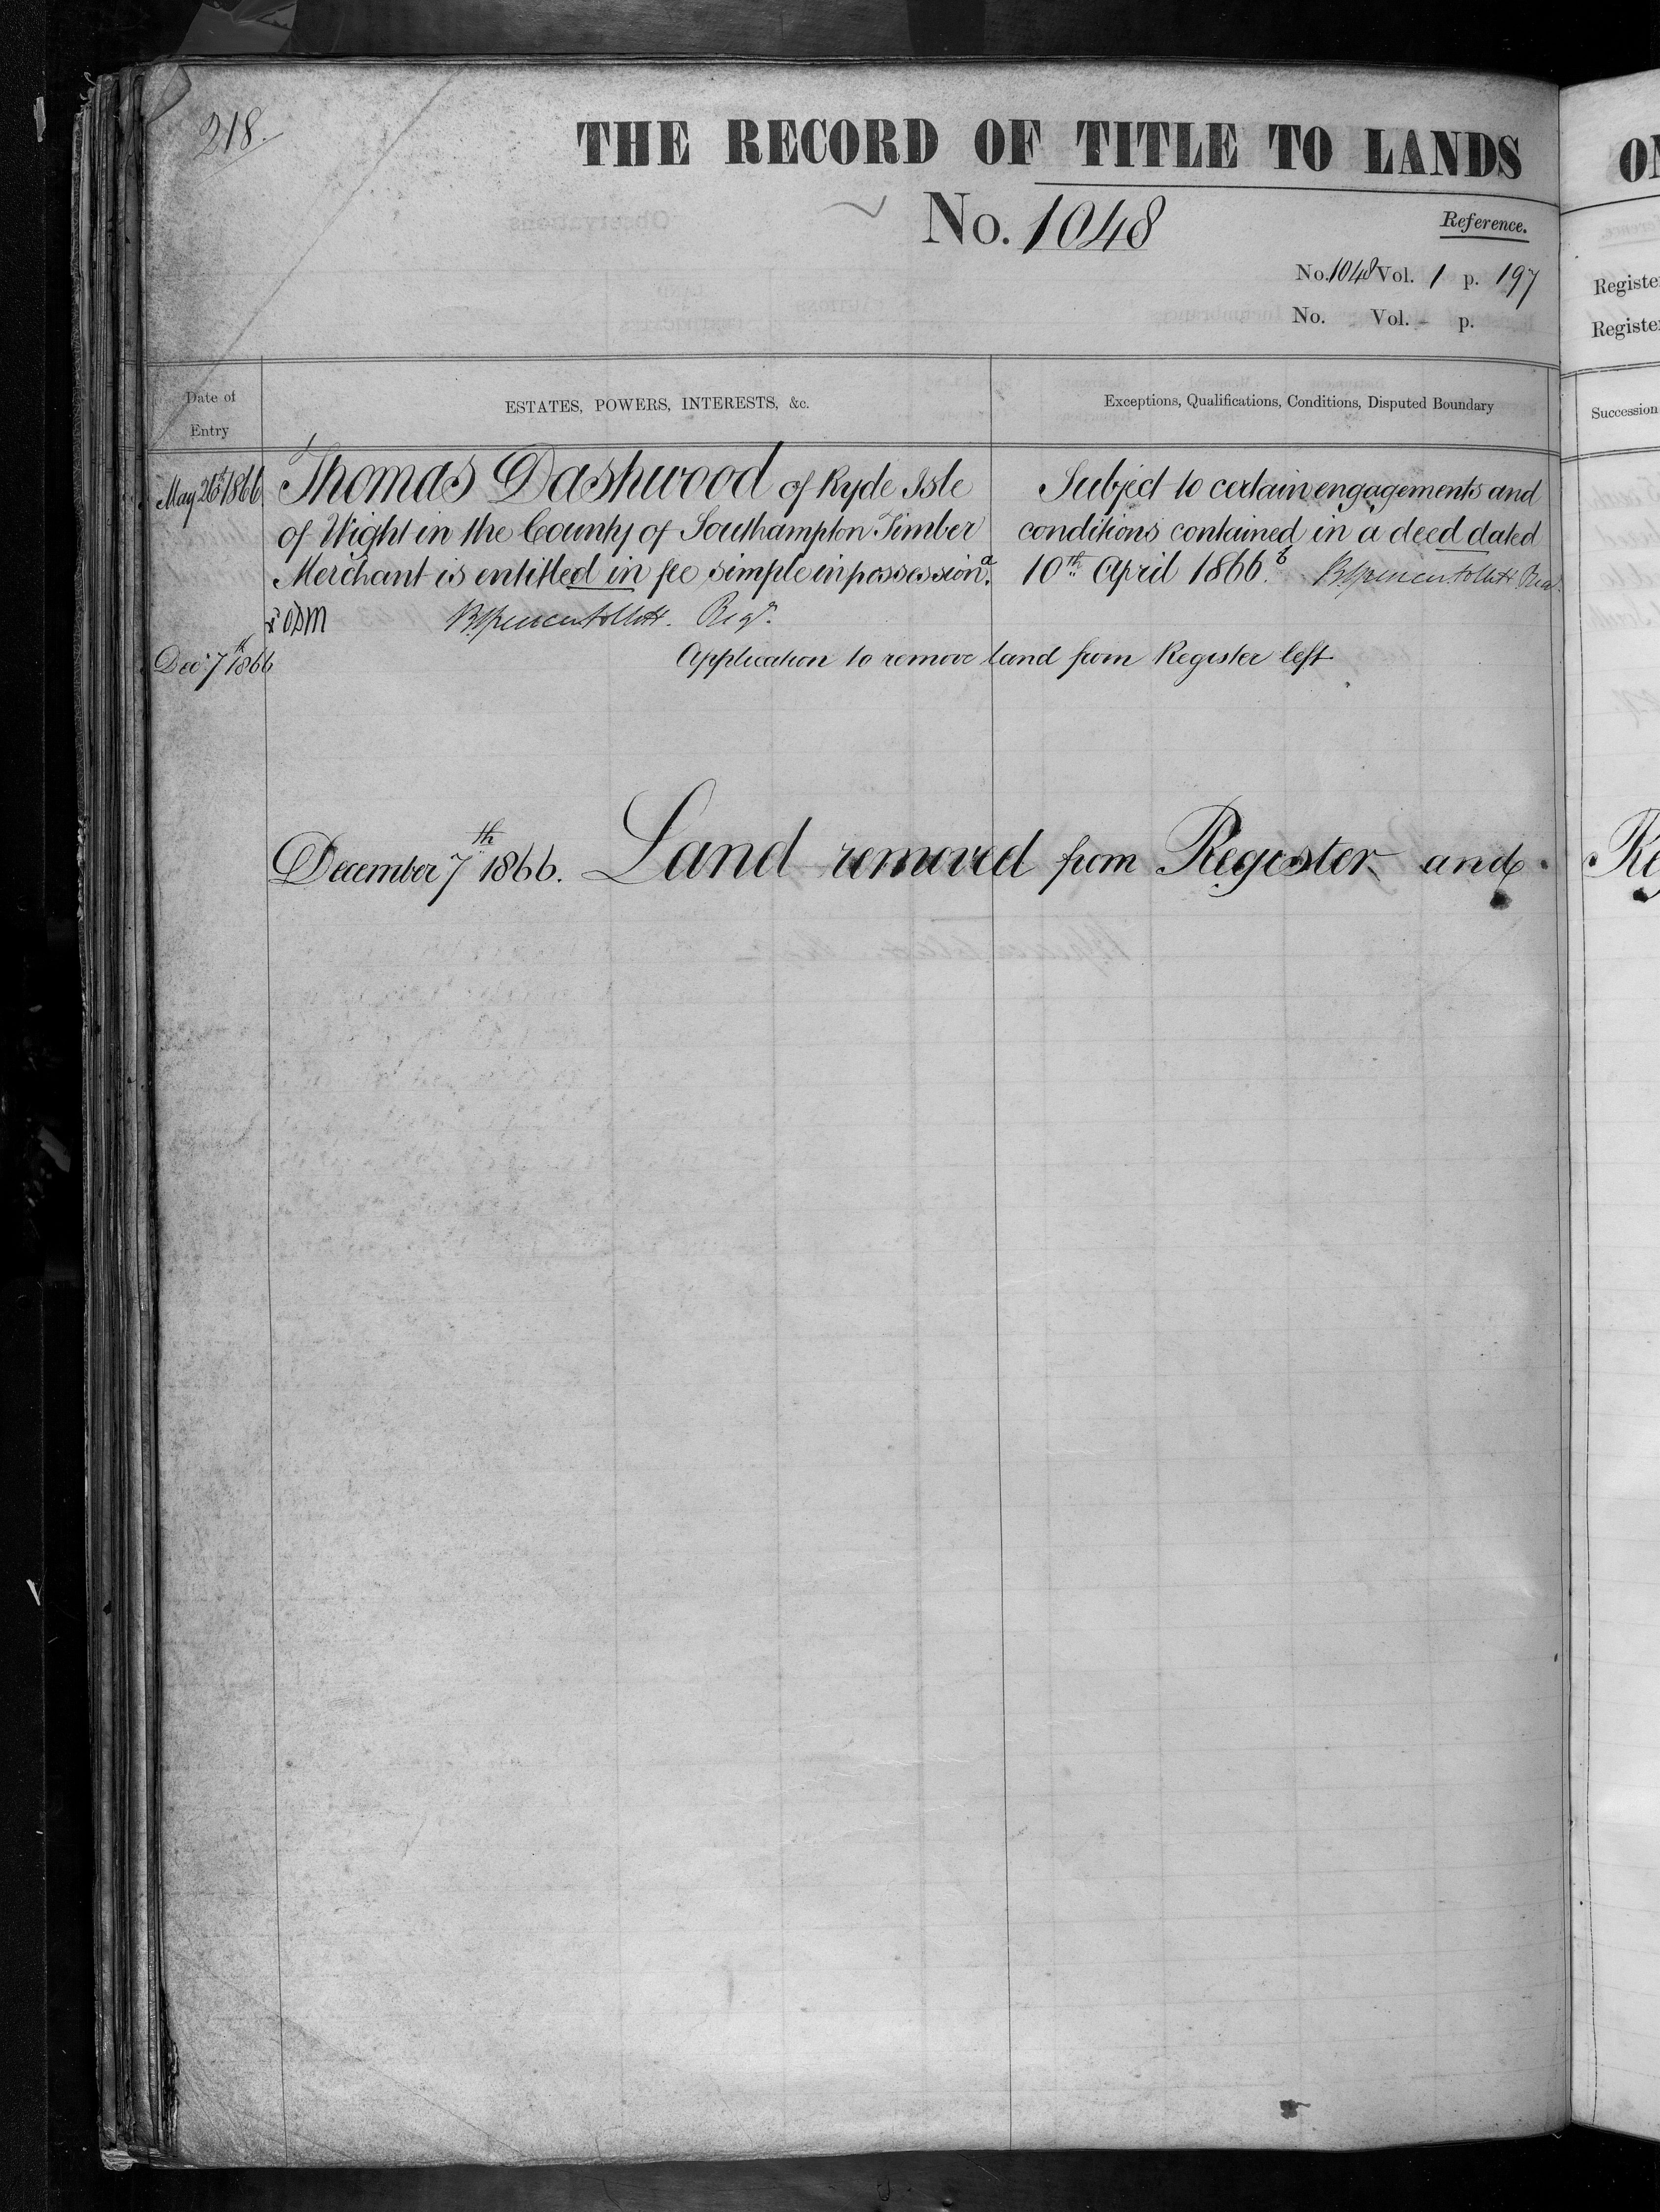 218.
THE RECORD OF TITLE TO LANDS
No. 1048
Reference.
No. 1048 Vol. 1 p. 197
No. Vol. - p.
Date of Entry
ESTATES, POWERS, INTERESTS, &c.
Exceptions, Qualifications, Conditions, Disputed Boundary
May 26th 1866
Thomas Dashwood of Ryde Isle
of Wight in the County of Southampton Timber
Merchant is entitled in fee simple in possession.a
Regr.
Subject to certain engagements and
conditions contained in a deed dated
10th April 1866.b
Decr 7th 1866
Application to remove land from Register left
December 7th 1866. Land removed from Register and
Register
Register
Succession